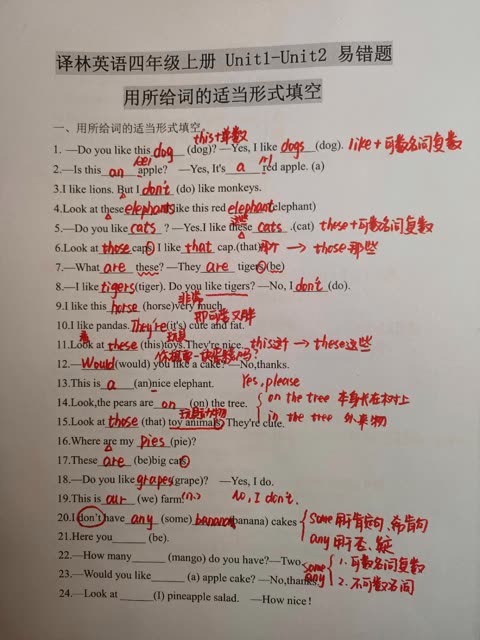 译林英语四年级上册 Unit1-Unit2 易错题
用所给词的适当形式填空
一、用所给词的适当形式填空
this+单数
1. —Do you like this dog (dog)? —Yes, I like dogs (dog). like+可数名词复数
2.—Is this an apple? —Yes, It's a red apple. (a)
3.I like lions. But I don't (do) like monkeys.
4.Look at these elephants like this red elephant (elephant)
这些
5.—Do you like cats ? —Yes.I like these cats .(cat) these+可数名词复数
6.Look at those caps I like that cap.(that) 那个 → those 那些
7.—What are these? —They are tigers(be)
8.—I like tigers (tiger). Do you like tigers? —No, I don't (do).
非常
9.I like this horse (horse)very much.
即可爱又胖
10.I like pandas. They're (it's) cute and fat.
看 玩具
11.Look at these (this)toys.They're nice. this这个 → these这些
12.—Would (would) you like a cake? —No,thanks.
13.This is a (an)nice elephant. Yes, please
14.Look,the pears are on (on) the tree. on the tree 本身长在树上
玩具动物 in the tree 外来物
15.Look at those (that) toy animals. They're cute.
16.Where are my pies (pie)?
17.These are (be)big cats
18.—Do you like grapes (grape)? —Yes, I do.
19.This is our (we) farm. No, I don't.
20.I don't have any (some) banana (banana) cakes some 用于肯定句、希肯句
any 用于否、疑
21.Here you (be).
22.—How many (mango) do you have?—Two. some any 1.可数名词复数
23.—Would you like (a) apple cake? —No,thanks. 2.不可数名词
24.—Look at (I) pineapple salad. —How nice!